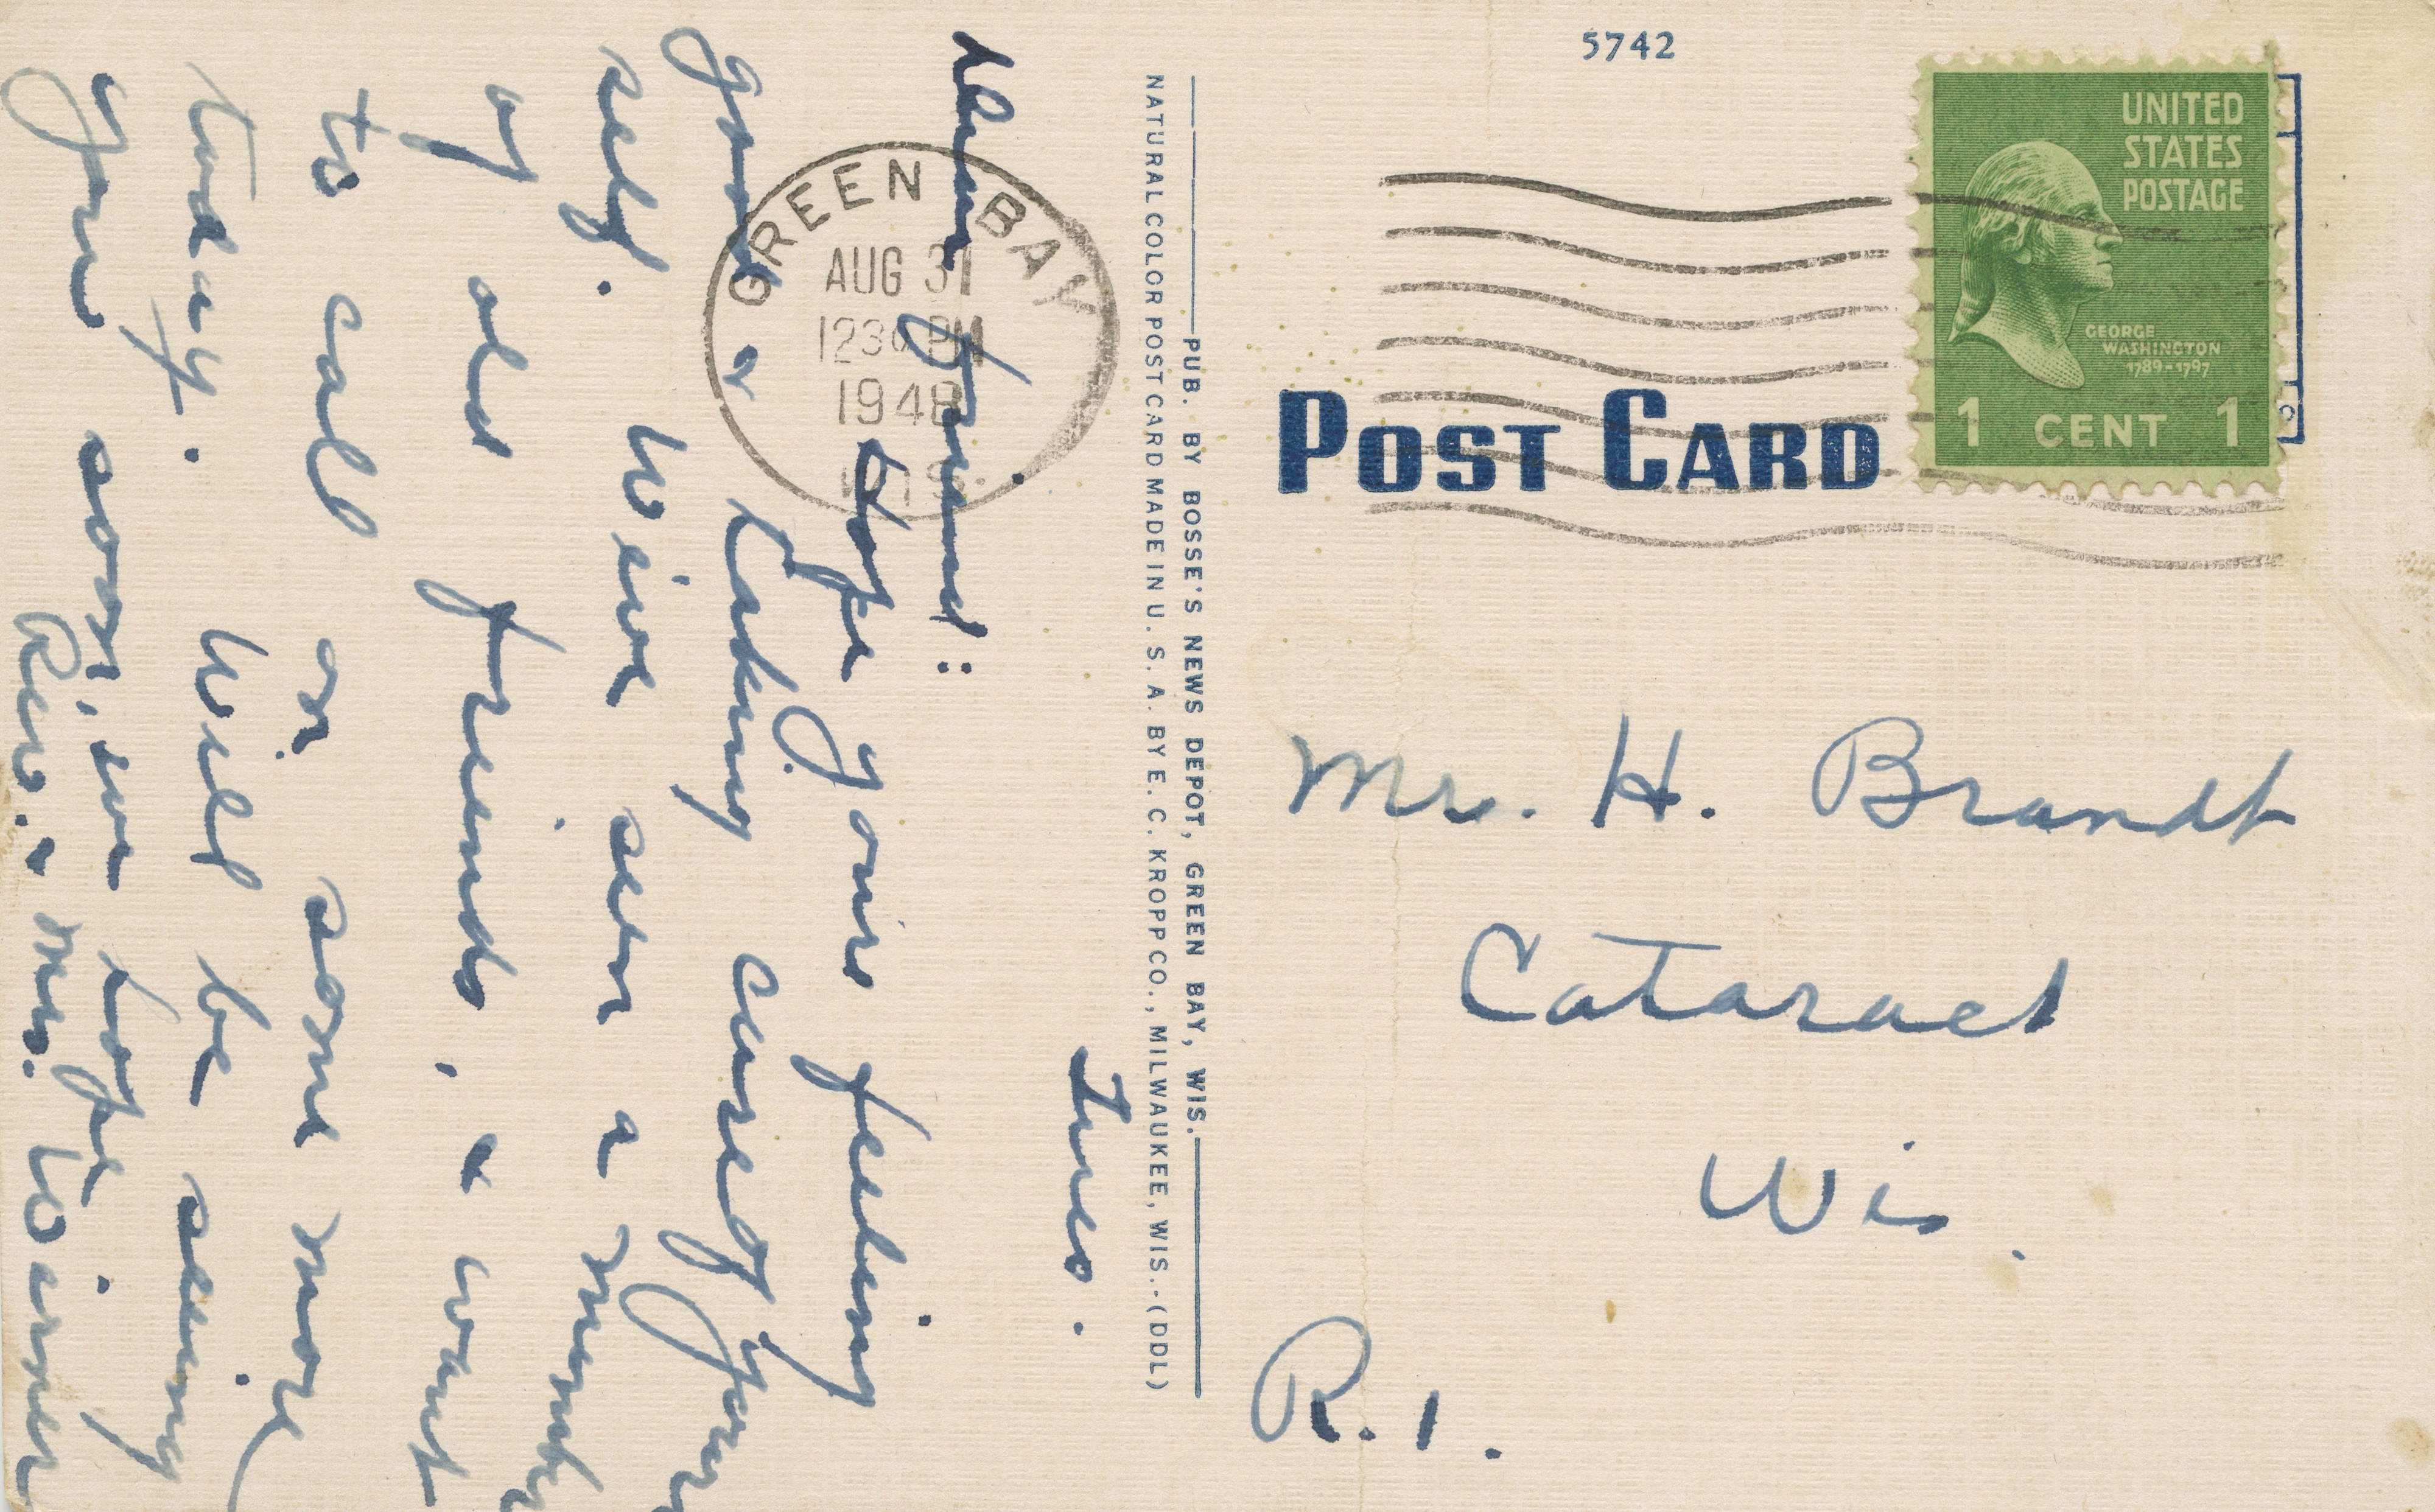 5742
UNITED
STATES
POSTAGE
GEORGE
WASHINGTON
1789-1797
1 CENT 1
POST CARD
GREEN BAY
AUG 31
1230 PM
1948
WIS.
Mr. H. Brandt
Cataract
Wis.
R. 1.
PUB. BY BOSSE'S NEWS DEPOT, GREEN BAY, WIS.
NATURAL COLOR POST CARD MADE IN U. S. A. BY E. C. KROPP CO., MILWAUKEE, WIS.-(DDL)
Tues.
Dear Friend:
Hope you're feeling
good & taking care of your
self. We've seen a number
of old friends, & want
to call on some more
today. Will be seeing
you soon, we hope.
Rev. & Mrs. Warner